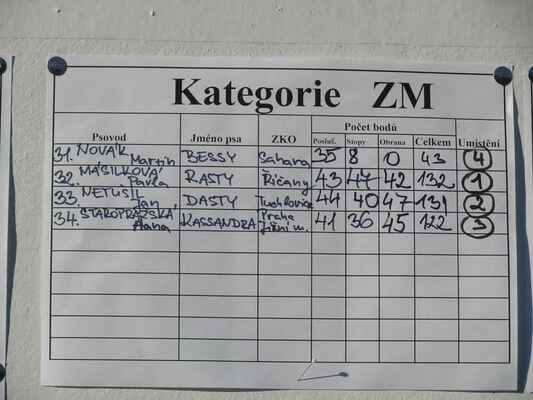 Kategorie ZM
Psovod Jméno psa ZKO Počet bodů Umístění
Posluš. Stopy Obrana Celkem
31. NOVÁK Martin BESSY Sahara 35 8 0 43 4
32. MÁSILKOVÁ Pavla RASTY Říčany 43 47 42 132 1
33. NETUŠIL Jan DASTY Tuchlovice 44 40 47 131 2
34. STAROPRAŽSKÁ Hana KASSANDRA Praha Jižní m. 41 36 45 122 3